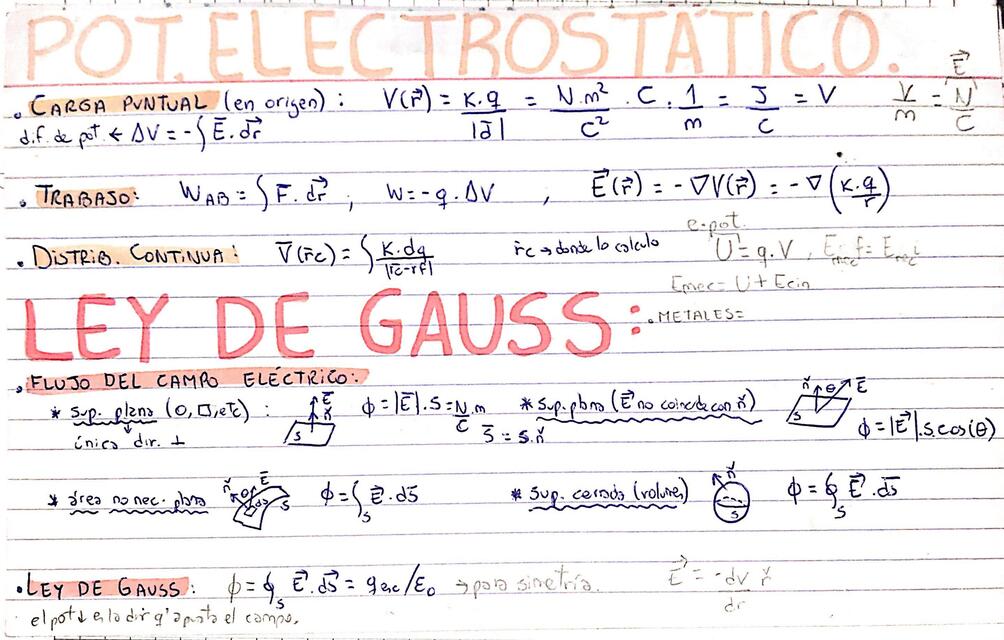 POT. ELECTROSTÁTICO.
• CARGA PUNTUAL (en origen) : V(r⃗) = K.q/|d̄| = N.m²/C² . C . 1/m = J/C = V V/m = N/C E⃗
dif. de pot ← ΔV = -∫ Ē. dr⃗
• TRABAJO: W_AB = ∫ F̄. dr⃗ ; W = -q. ΔV , E⃗(r⃗) = -∇V(r⃗) = -∇(K.q/r)
e. pot.
• DISTRIB. CONTINUA: V̄(r̄c) = ∫ K.dq/|r̄c-r̄f| r̄c → donde lo calculo U = q.V , Emec f = Emec i
Emec = U + Ecin
LEY DE GAUSS: • METALES=
• FLUJO DEL CAMPO ELÉCTRICO:
* Sup. plana (O, □, etc) : S Ē ň ϕ = |Ē|. S = N.m/C * Sup. plana (E⃗ no coincide con ň) ň θ Ē S
única dir. ⊥ S̄ = S.ň ϕ = |E⃗|.S.cos(θ)
* área no nec. plana ň θ Ē ds S ϕ = ∫s E⃗. ds̄ * Sup. cerrada (volumen) ň S ϕ = ∮s E⃗. ds̄
• LEY DE GAUSS: ϕ = ∮s E⃗. ds⃗ = q enc/ε₀ → para simetría. E⃗ = -dV/dr ř
el pot ↓ en la dir q' apunta el campo.